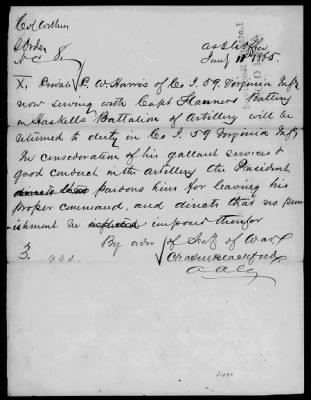 A & I G Office
Jany 11th 1865.
X. Private P. W. Harris of Co I. 59. Virginia Infy
now serving with Capt Flanners Battery
in Haskells Battalion of Artillery will be
returned to duty in Co I. 59 Virginia Infy
In consideration of his gallant services &
good conduct in the artillery the President
pardons him for leaving his
proper command, and directs that no pun-
ishment be inflicted imposed therefor
3. By order of Secty of War
A. A. G.